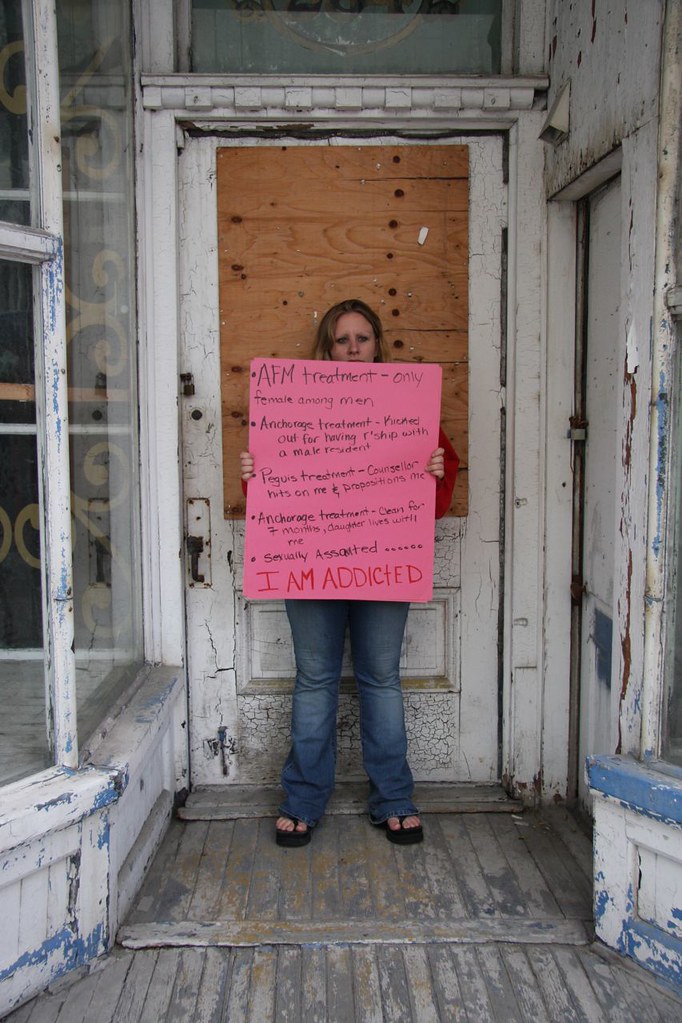 •AFM treatment - only
female among men
•Anchorage treatment - Kicked
out for having r'ship with
a male resident
•Peguis treatment - Counsellor
hits on me & propositions me
•Anchorage treatment - Clean for
7 months, daughter lives with
me
• Sexually Assaulted ......
I AM ADDICTED